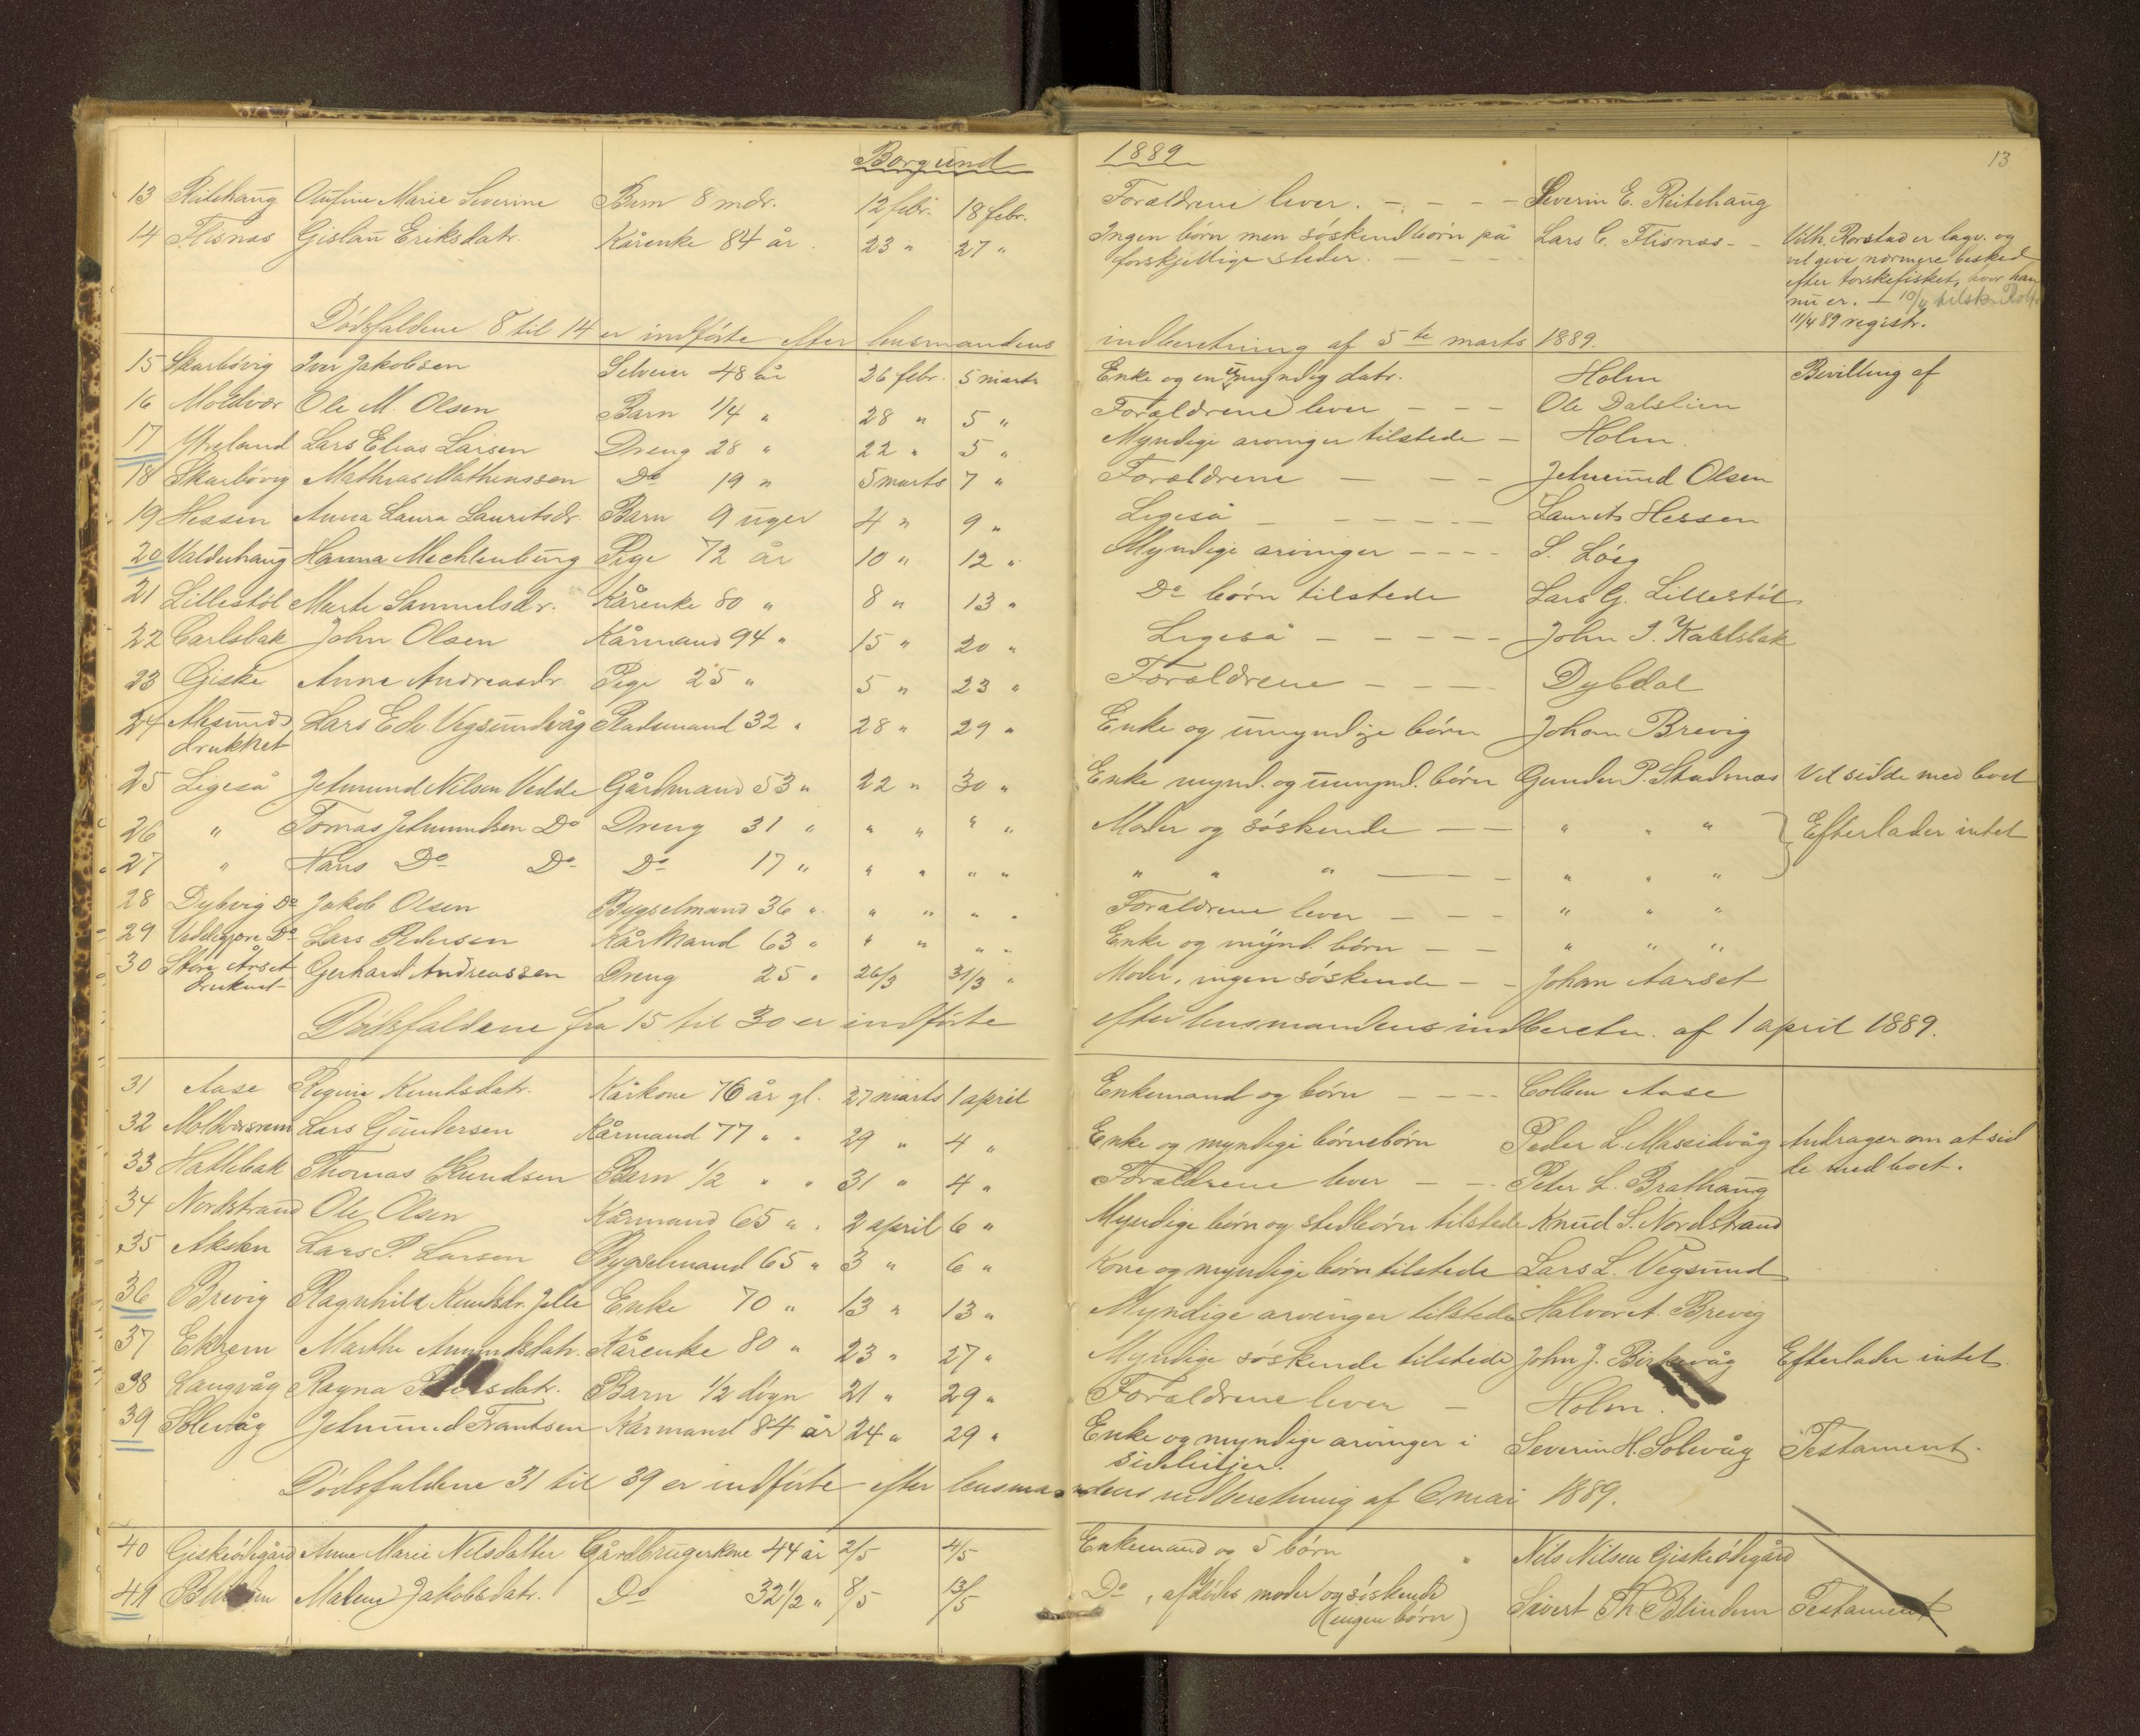 Borgund 1889 13
13 Reitehaug Olufine Marie Severine Barn 8 mdr. 12 febr. 18 febr. Forældrene lever. - - - Severin E. Reitehaug
14 Flisnæs Gislau Eriksdatr. Kårenke 84 år 23 " 27 " Ingen børn men søskendbørn på Lars C. Flisnæs - - Vilh. Rorstad er lagv. og
forskjellige steder. - - - vil give nærmere besked
efter torskefisket, hvor han
nu er. - 10/4 tilskr.
11/4 89 registr.
Dødsfaldene 8 til 14 er indførte efter lensmandens indberetning af 5te marts 1889.
15 Skarbøvig Iver Jakobsen Selveier 48 år 26 febr. 5 marts Enke og en umyndig datr. Holm Bevilling af
16 Moldvær Ole M. Olsen Barn 1/4 " 28 " 5 " Forældrene lever - - - Ole Dalslien
17 Ytreland Lars Elias Larsen Dreng 28 " 22 " 5 " Myndige arvinger tilstede - Holm.
18 Skarbøvig Mathias Mathiussen Do 19 " 5 marts 7 " Forældrene - - - Jetmund Olsen
19 Hessen Anna Laura Lauritsdr. Barn 9 uger 4 " 9 " Ligeså - - - - - Laurits Hessen
20 Valderhaug Hanna Mechlenburg Pige 72 år 10 " 12 " Myndige arvinger - - - - S. Løeg
21 Lillestøl Marte Samuelsdr. Kårenke 80 " 8 " 13 " Do børn tilstede Lars G. Lillestøl
22 Carlsbak John Olsen Kårmand 94 " 15 " 20 " Ligeså - - - - - John J. Kaldsbak
23 Giske Anne Andreasdr. Pige 25 " 5 " 23 " Forældrene - - - Dybdal
24 Alesund Lars Edv. Vegsundvåg Pladsmand 32 " 28 " 29 " Enke og umyndige børn Johan Brevig
druknet
25 Ligeså Jetmund Nilsen Vedde Gårdmand 53 " 22 " 30 " Enke mynd. og umynd. børn Gunder P. Stadsnæs Vil sidde med boet
26 " Tomas Jetmundsen Do Dreng 31 " " " " " Moder og søskende - - " " " } Efterlader intet
27 " Hans Do Do Do 17 " " " " " " " " - - - " " "
28 Dybvig Do Jakob Olsen Bygselmand 36 " " " " " Forældrene lever - - - " " "
29 Veddegjære Do Lars Pedersen Kårmand 63 " " " " " Enke og mynd. børn - - " " "
30 Store Årset Gerhard Andreassen Dreng 25 " 26/3 31/3 " Moder, ingen søskende - - Johan Aarset
druknet
Dødsfaldene fra 15 til 30 er indførte efter lensmandens indberetn. af 1 april 1889.
31 Aase Regine Knudsdatr. Kårkone 76 år gl. 27 marts 1 april Enkemand og børn - - - - Aase
32 Moldværsrem Lars Gundersen Kårmand 77 " " 29 " 4 " Enke og myndige børnebørn Peder L. Mæseidvåg Andrager om at sid
de med boet.
33 Hatlebak Thomas Knudsen Barn 1/2 " " 31 " 4 " Forældrene lever - - - Peter L. Brathaug
34 Nordstrand Ole Olsen Kårmand 65 " " 2 april 6 " Myndige børn og stedbørn tilstede Knud S. Nordstrand
35 Akslen Lars P. Larsen Bygselmand 65 " 3 " 6 " Kone og myndige børn tilstede Lars L. Vegsund
36 Brevig Ragnhild Knudsdr. Jelle Enke 70 " 13 " 13 " Myndige arvinger tilstede Halvor A. Brevig
37 Ekrem Marthe Amundsdatr. Kårenke 80 " 23 " 27 " Myndige søskende tilstede John J. Birkevåg Efterlader intet
38 Langvåg Ragna Barn 1/2 døgn 21 " 29 " Forældrene lever - Holm.
39 Solevåg Jetmund Frantsen Kårmand 84 år 24 " 29 " Enke og myndige arvinger i Severin H. Solevåg Testament.
sidelinjer.
Dødsfaldene 31 til 39 er indførte efter lensmandens indberetning af 6 mai 1889.
40 Giskeødegård Anne Marie Nilsdatter Gårdbrugerkone 44 år 2/5 4/5 Enkemand og 5 børn Nils Nilsen Giskeødegård
41 Blindem Malene Jakobsdatr. Do 32 1/2 " 8/5 13/5 Do, afdødes moder og søskende Sivert Th. Blindem Testament
(ingen børn)